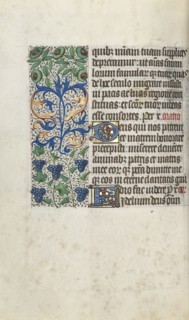 quibus tuam
deprecamur: ut aīas famu
lorum famularūq; tuarū quas
de hoc seculo migrare iussisti
in pacis ac lucis regione con
stituas: et scōrū tuorū iubeas
esse consortes. per x. oratio
Deus qui nos patrem
et matrem honorare
precepisti: miserere clementer
animabus patris et matris
mee eorūq; pctā dimitte me
q; eos in eterne claritatis gau
dio fac videre p x
Fidelium deus oīm